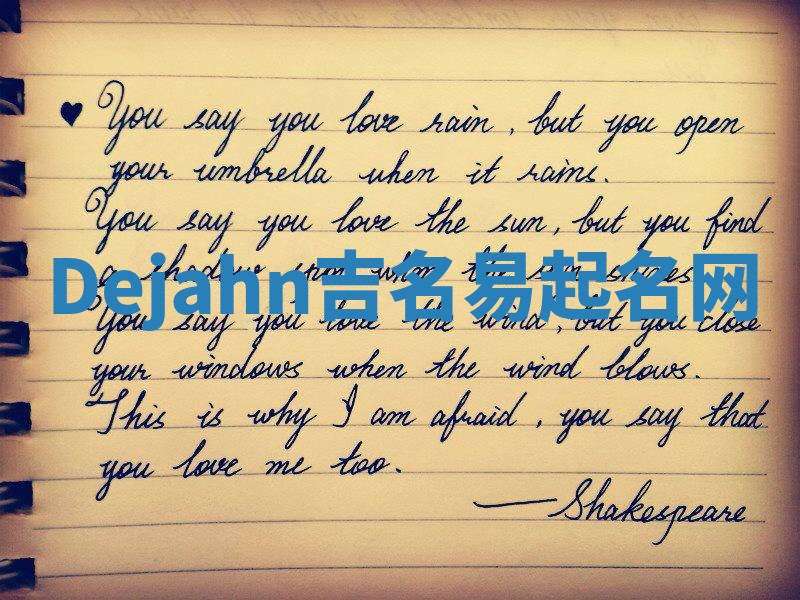 You say you love rain, but you open
your umbrella when it rains.
You say you love the sun, but you find
a shadow spot when the sun shines.
Dejahn吉名易起名网
You say you love the wind, but you close
your windows when the wind blows.
This is why I am afraid, you say that
you love me too.
—Shakespeare